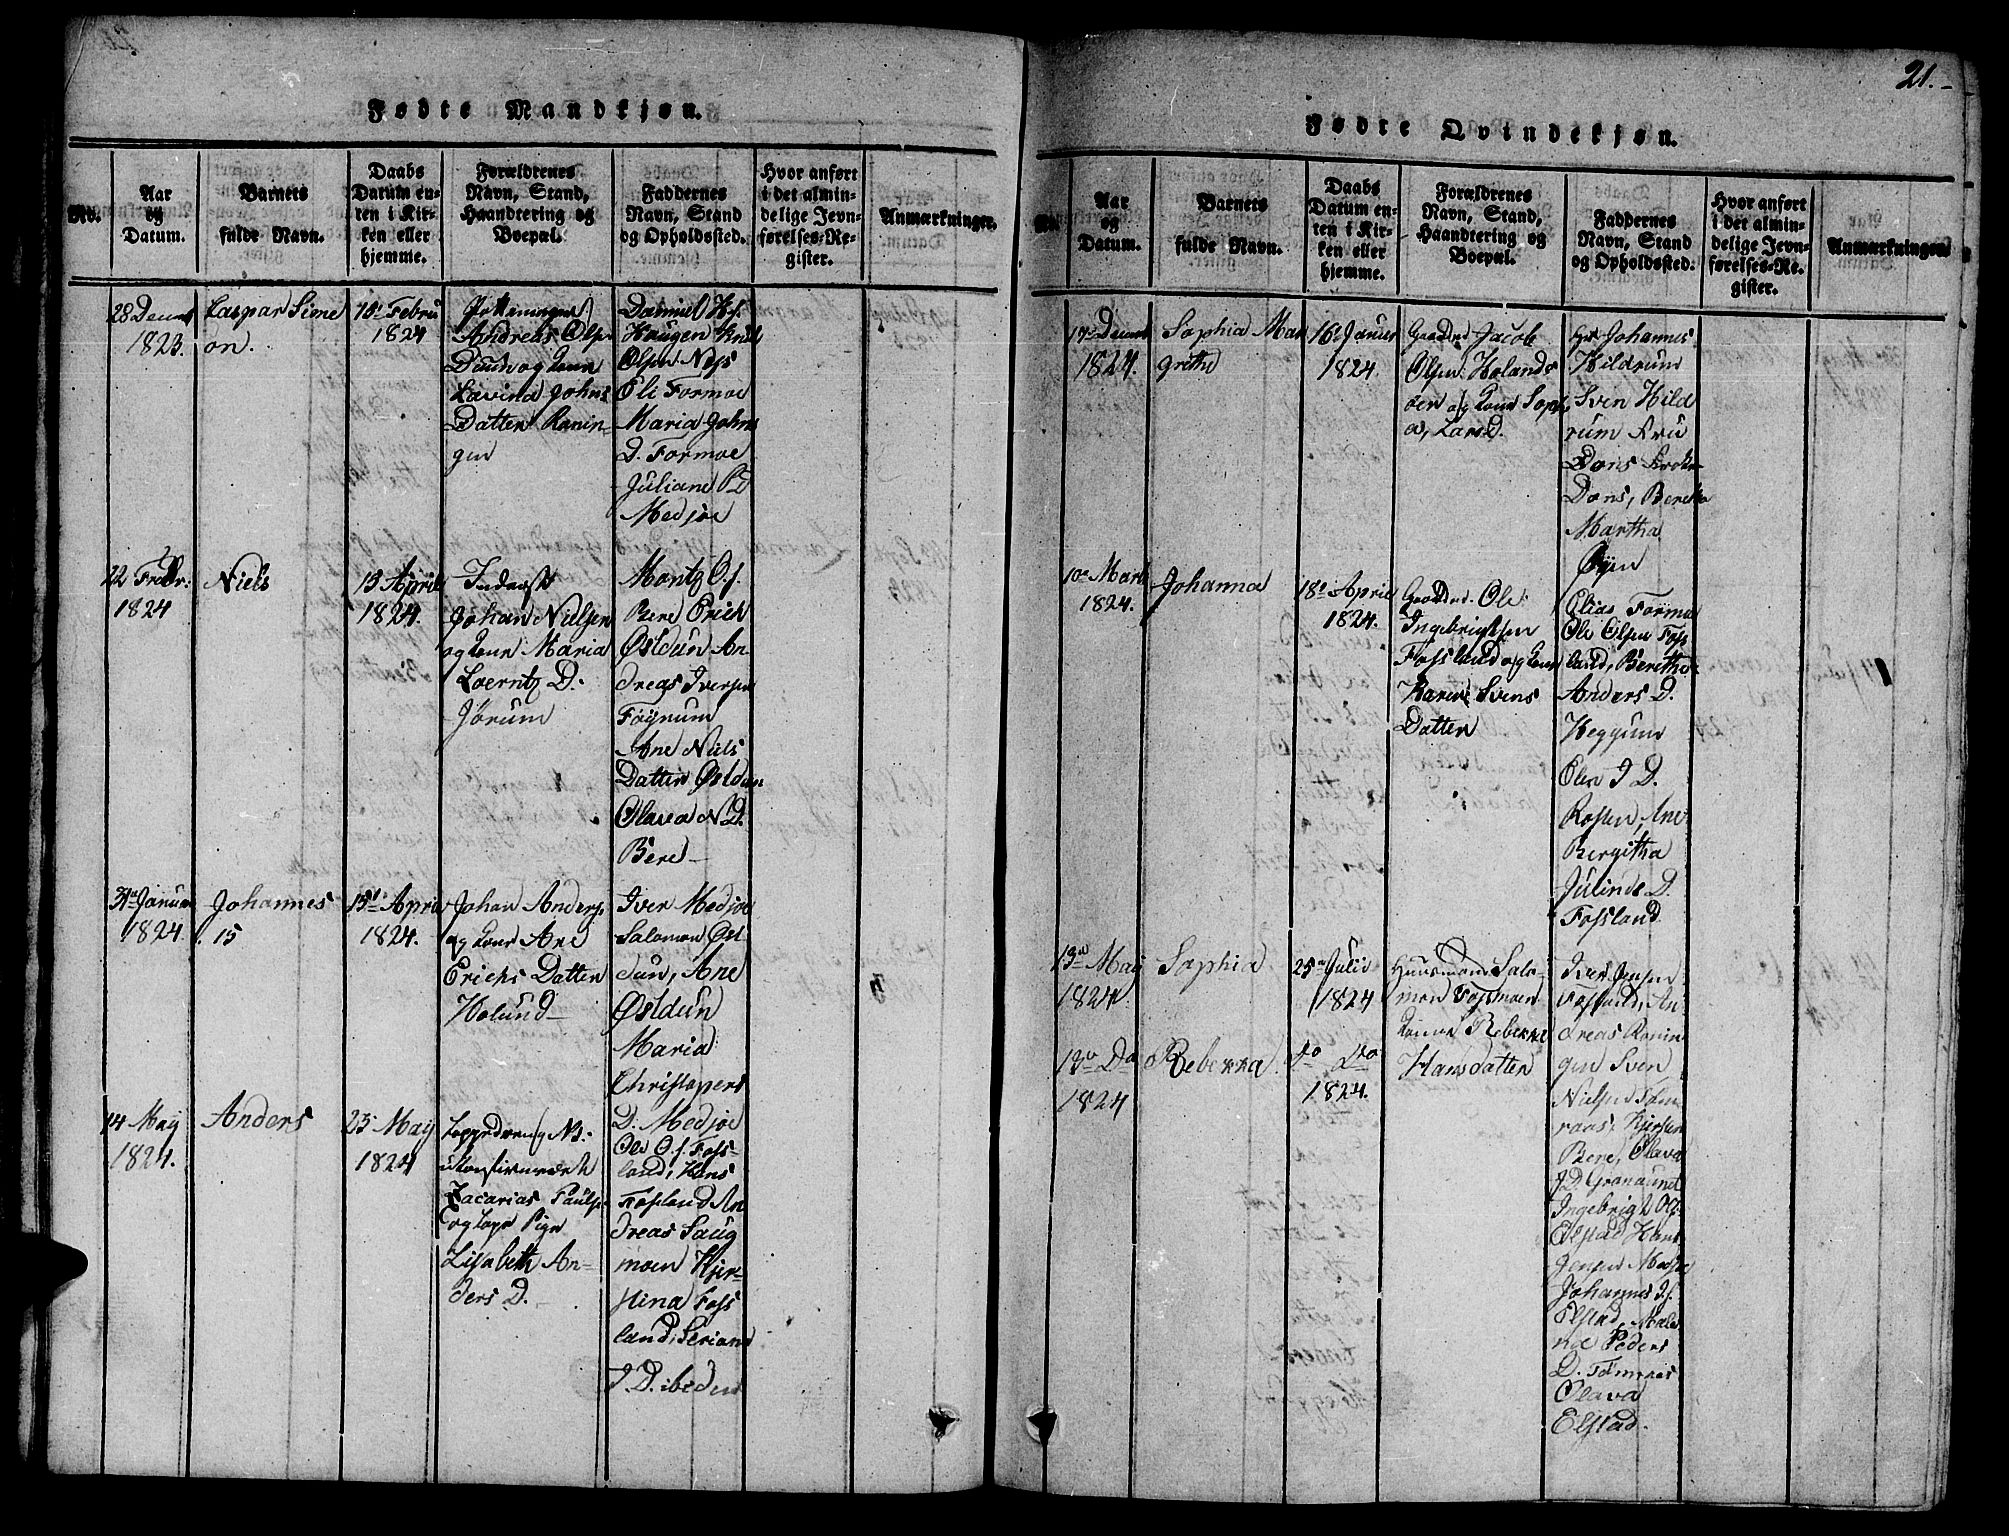 Fødte Mandkjøn.
No.
Aar
og
Datum.
Barnets
fulde Navn.
Daabs
Datum en-
ten i Kir-
ken eller
hjemme.
Forældrenes
Navn, Stand,
Haandtering og
Boepæl.
Faddernes
Navn, Stand
og Opholdssted.
Hvor anført
i det almin-
delige Jevn-
førelses-Re-
gister.
Anmærkninger.
1823.
Caspar Sime
on.
15 Febru
1824
Andreas Ols
Duun og Kone
Lavina Johns
Datter Ronin-
gen
Daniel
Haugen Knud
Olsen Næss
Eli Formoe
Maria Johns
D. Formoe
Juliane PD
Medjoe
22 Febr:
1824
Niels
13 April
1824.
Inderst
Johan Nielsen
og Kone Maria
Loerntz D.
Jørum
Mantz O.s.
Bere Erich
Østdun An
dreas Iversen
Føynum
Ane Niels
Datter Østdun
Olava N.D.
Bere
31 Januar
1824.
Johannes
15
15 April
1824.
Johan Anders
og Kone Ane
Erichs Datter
Holund
Iver Medjoe
Salomon Øst
dun, Ane
Østdun
Maria
Christopers
D. Medjoe
14 May
1824.
Anders
23 May
1824
Zacarias Pauls
og Pige
Lisabeth An-
ders D.
Ole O.s. Foss-
land, Hans
Fosland An
dreas Saug
moen Kjer-
stina Foss
land, Seriane
I. D. ibidem
21.
Fødte Qvindekjøn.
No.
Aar
og
Datum.
Barnets
fulde Navn.
Daabs
Datum en-
ten i Kir-
ken eller
hjemme.
Forældrenes
Navn, Stand,
Haandtering og
Boepæl.
Faddernes
Navn, Stand
og Opholdssted.
Hvor anført
i det almin-
delige Jevn-
førelses-Re-
gister.
Anmærkninger
1824.
Sophia Mar
grethe
16 Januar
1824
Jacob
Olsen Holands
øen og Kone Soph
a, Lars D.
Johannes
Hildrum
Sven Hild
rum
Dons
Dons, Beretha
Martha
Øyen
10 Marts
1824.
Johanna
18 April
1824.
Ole
Ingebrigtsen
Fossland og Kone
Karen Svens
Datter
Elias Formo
Ole Olsen Foss
land, Berethe
Anders D.
Heggum
Elen I D.
Rossen, Ane
Bergitha
Julinde D.
Fossland
13 May
1824.
Sophia
25 Juli
1824
Huusmand Salo-
mon Fossmoen
Konen Rebekke
Hansdatter
13 Do
1824
Rebekka
Do Do
1824.
Iver Jensen
Fossland, An
dreas Ronin
gen Sven
Nielsen
Bere, Olava
J D. Grønaune
Ingebrigt Ols
Elstad Hans
Jensen
Johannes I.s.
Elstad, Male
na Peders
D.
Olava
Elstad.